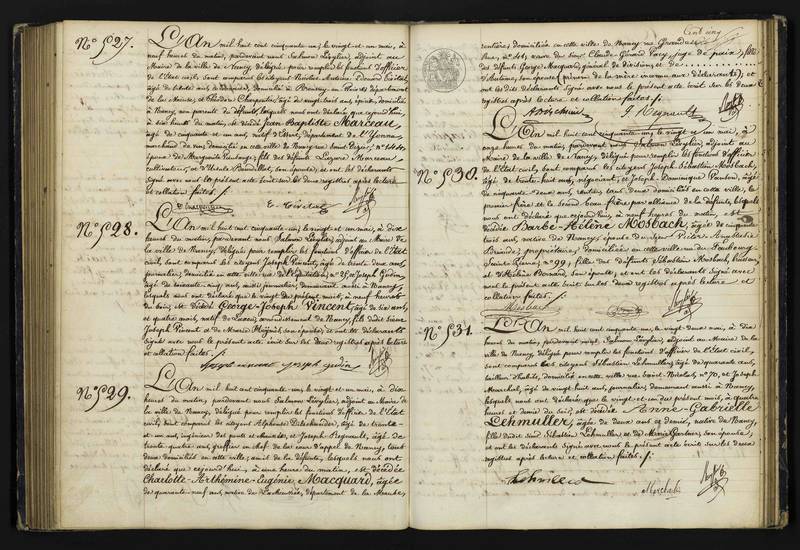 N° 527.
L'An mil huit cent cinquante un, le vingt et un mai, à
neuf heures du matin, pardevant nous Salmon Lévylier, adjoint au
Maire de la ville de Nancy, délégué pour remplir les fonctions d'officier
de l'Etat civil, sont comparus les citoyens Nicolas
âgé de trente ans
de la Meuse, et Théodore Charpentier, âgé de vingt trois ans
Nancy, non parents du défunt, lesquels nous ont déclaré que cejourd'hui,
à huit heures du matin, est décédé Jean Baptiste Marceau,
âgé de cinquante et un ans, natif d' département de l'Yonne,
marchand de vin, domicilié en cette ville de Nancy rue Saint Dizier, N°
époux de Marguerite fils des défunts Lazare Marceau,
cultivateur, et d' son épouse; et ont les déclarants
signé avec nous le présent acte écrit sur les deux registres après lecture
et collation faites ./.
N° 528.
L'An mil huit cent cinquante-un, le vingt et un mai, à dix
heures du matin, pardevant nous Salmon Lévylier, adjoint au Maire de
la ville de Nancy, délégué pour remplir les fonctions d'officier de l'Etat
civil, sont comparus les citoyens Joseph Vincent, âgé de trente deux ans,
journalier, domicilié en cette ville rue de l'Equitation, N° 25, et Joseph Godin,
âgé de soixante-cinq ans, aussi journalier, demeurant aussi à Nancy,
lesquels nous ont déclaré que le vingt du présent mois, à neuf heures
du soir, est décédé George-Joseph Vincent, âgé de six ans,
et quatre mois, natif de arrondissement de Nancy, fils dudit sieur
Joseph Vincent et de Marie son épouse; et ont les déclarants
signé avec nous le présent acte écrit sur les deux registres après lecture
et collation faites ./.
joseph vincent joseph godin
N° 529.
L'An mil huit cent cinquante-un, le vingt et un mai, à dix
heures du matin, pardevant nous Salmon Lévylier, adjoint au Maire de
la ville de Nancy, délégué pour remplir les fonctions d'officier de l'Etat
civil, sont comparus les citoyens Alphonse âgé de trente
et un ans, ingénieur des ponts et chaussées, et Joseph Regnault, âgé de
trente-quatre ans, greffier en chef de la cour d'appel de Nancy, tous
deux domiciliés en cette ville, amis de la défunte, lesquels nous ont
déclaré que cejourd'hui, à une heure du matin, est décédée
Charlotte-Arthémine-Eugénie Macquard, âgée
de quarante-neuf ans, native de département de la Meurthe,
Cent cinq
rentière, domiciliée en cette ville de Nancy rue
N° veuve du sieur Claude-Gérard juge de paix, fille
des défunts George Macquard, général de division et de
d'Autume, son épouse; et
ont les dits déclarants signé avec nous le présent acte écrit sur les deux
registres après lecture et collation faites ./.
J. Regnault
N° 530.
L'An mil huit cent cinquante-un, le vingt et un mai, à
onze heures du matin, pardevant nous Salmon Lévylier, adjoint au
Maire de la ville de Nancy, délégué pour remplir les fonctions d'officier
de l'Etat civil, sont comparus les citoyens Joseph Sébastien Mosbach,
âgé de trente huit ans, négociant, et Joseph Dominique âgé
de cinquante deux ans, rentier, tous deux domiciliés en cette ville, le
premier frère et le second beau frère par alliance de la défunte, lesquels
nous ont déclaré que cejourd'hui, à neuf heures du matin, est
décédée Barbe-Hélène Mosbach, âgée de cinquante
trois ans, native de Nancy, épouse du sieur
propriétaire, domiciliée en cette ville rue du Faubourg
Saint-Pierre, N° 99, fille des défunts Sébastien Mosbach,
et d'Hélène Bernard, son épouse; et ont les déclarants signé avec
nous le présent acte écrit sur les deux registres après lecture et
collation faites ./.
Mosbach
N° 531.
L'An mil huit cent cinquante-un, le vingt deux mai, à dix
heures du matin, pardevant nous Salmon Lévylier, adjoint au Maire de la
ville de Nancy, délégué pour remplir les fonctions d'officier de l'Etat civil,
sont comparus les citoyens Sébastien Lehmuller, âgé de quarante ans,
tailleur d'habits, domicilié en cette ville rue Saint Nicolas, N° 70, et Joseph
Marchal, âgé de vingt huit ans, journalier, demeurant aussi à Nancy,
lesquels nous ont déclaré que le vingt-et-un du présent mois, à quatre
heures et demie du soir, est décédée Anne-Gabrielle
Lehmuller, âgée de deux ans et demi, native de Nancy,
fille dudit sieur Sébastien Lehmuller, et de Marie Gardeur, son épouse;
et ont les déclarants signé avec nous le présent acte écrit sur les deux
registres après lecture et collation faites ./.
Lehmuller
Marchal